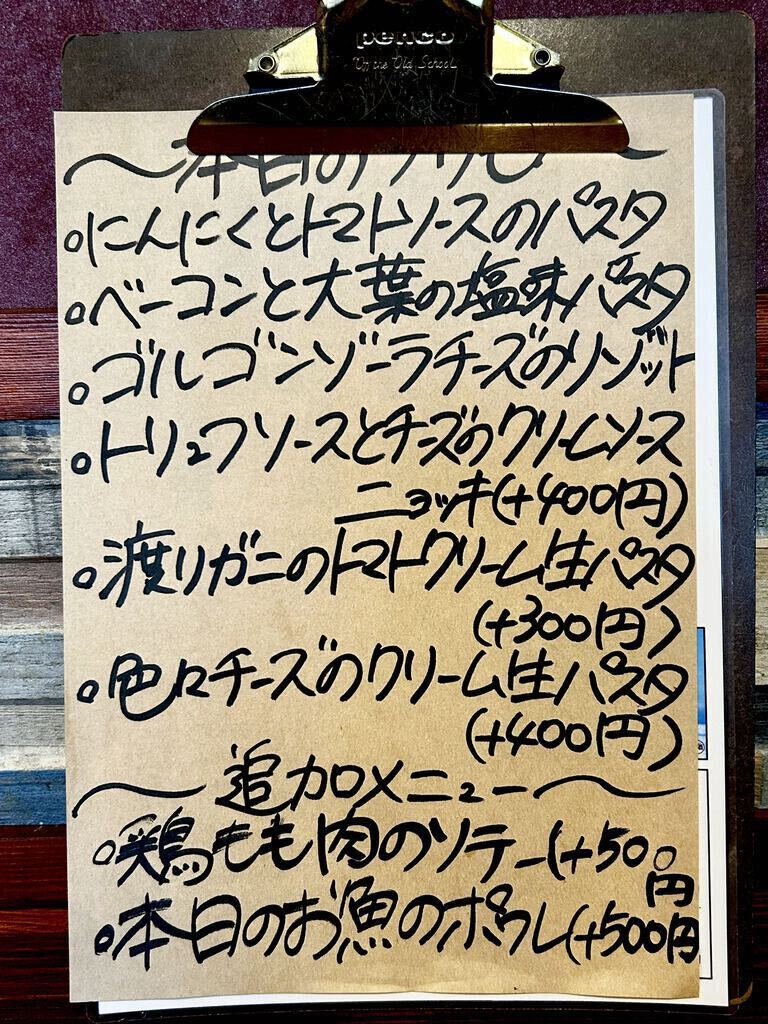 penco
Of the Old School
〜本日の
○にんにくとトマトソースのパスタ
○ベーコンと大葉の塩味パスタ
○ゴルゴンゾーラチーズのリゾット
○トリュフソースとチーズのクリームソース
ニョッキ(+400円)
○渡りガニのトマトクリーム生パスタ
(+300円)
○色々チーズのクリーム生パスタ
(+400円)
〜追加メニュー〜
○鶏もも肉のソテー(+500
円
○本日のお魚のポワレ(+500円